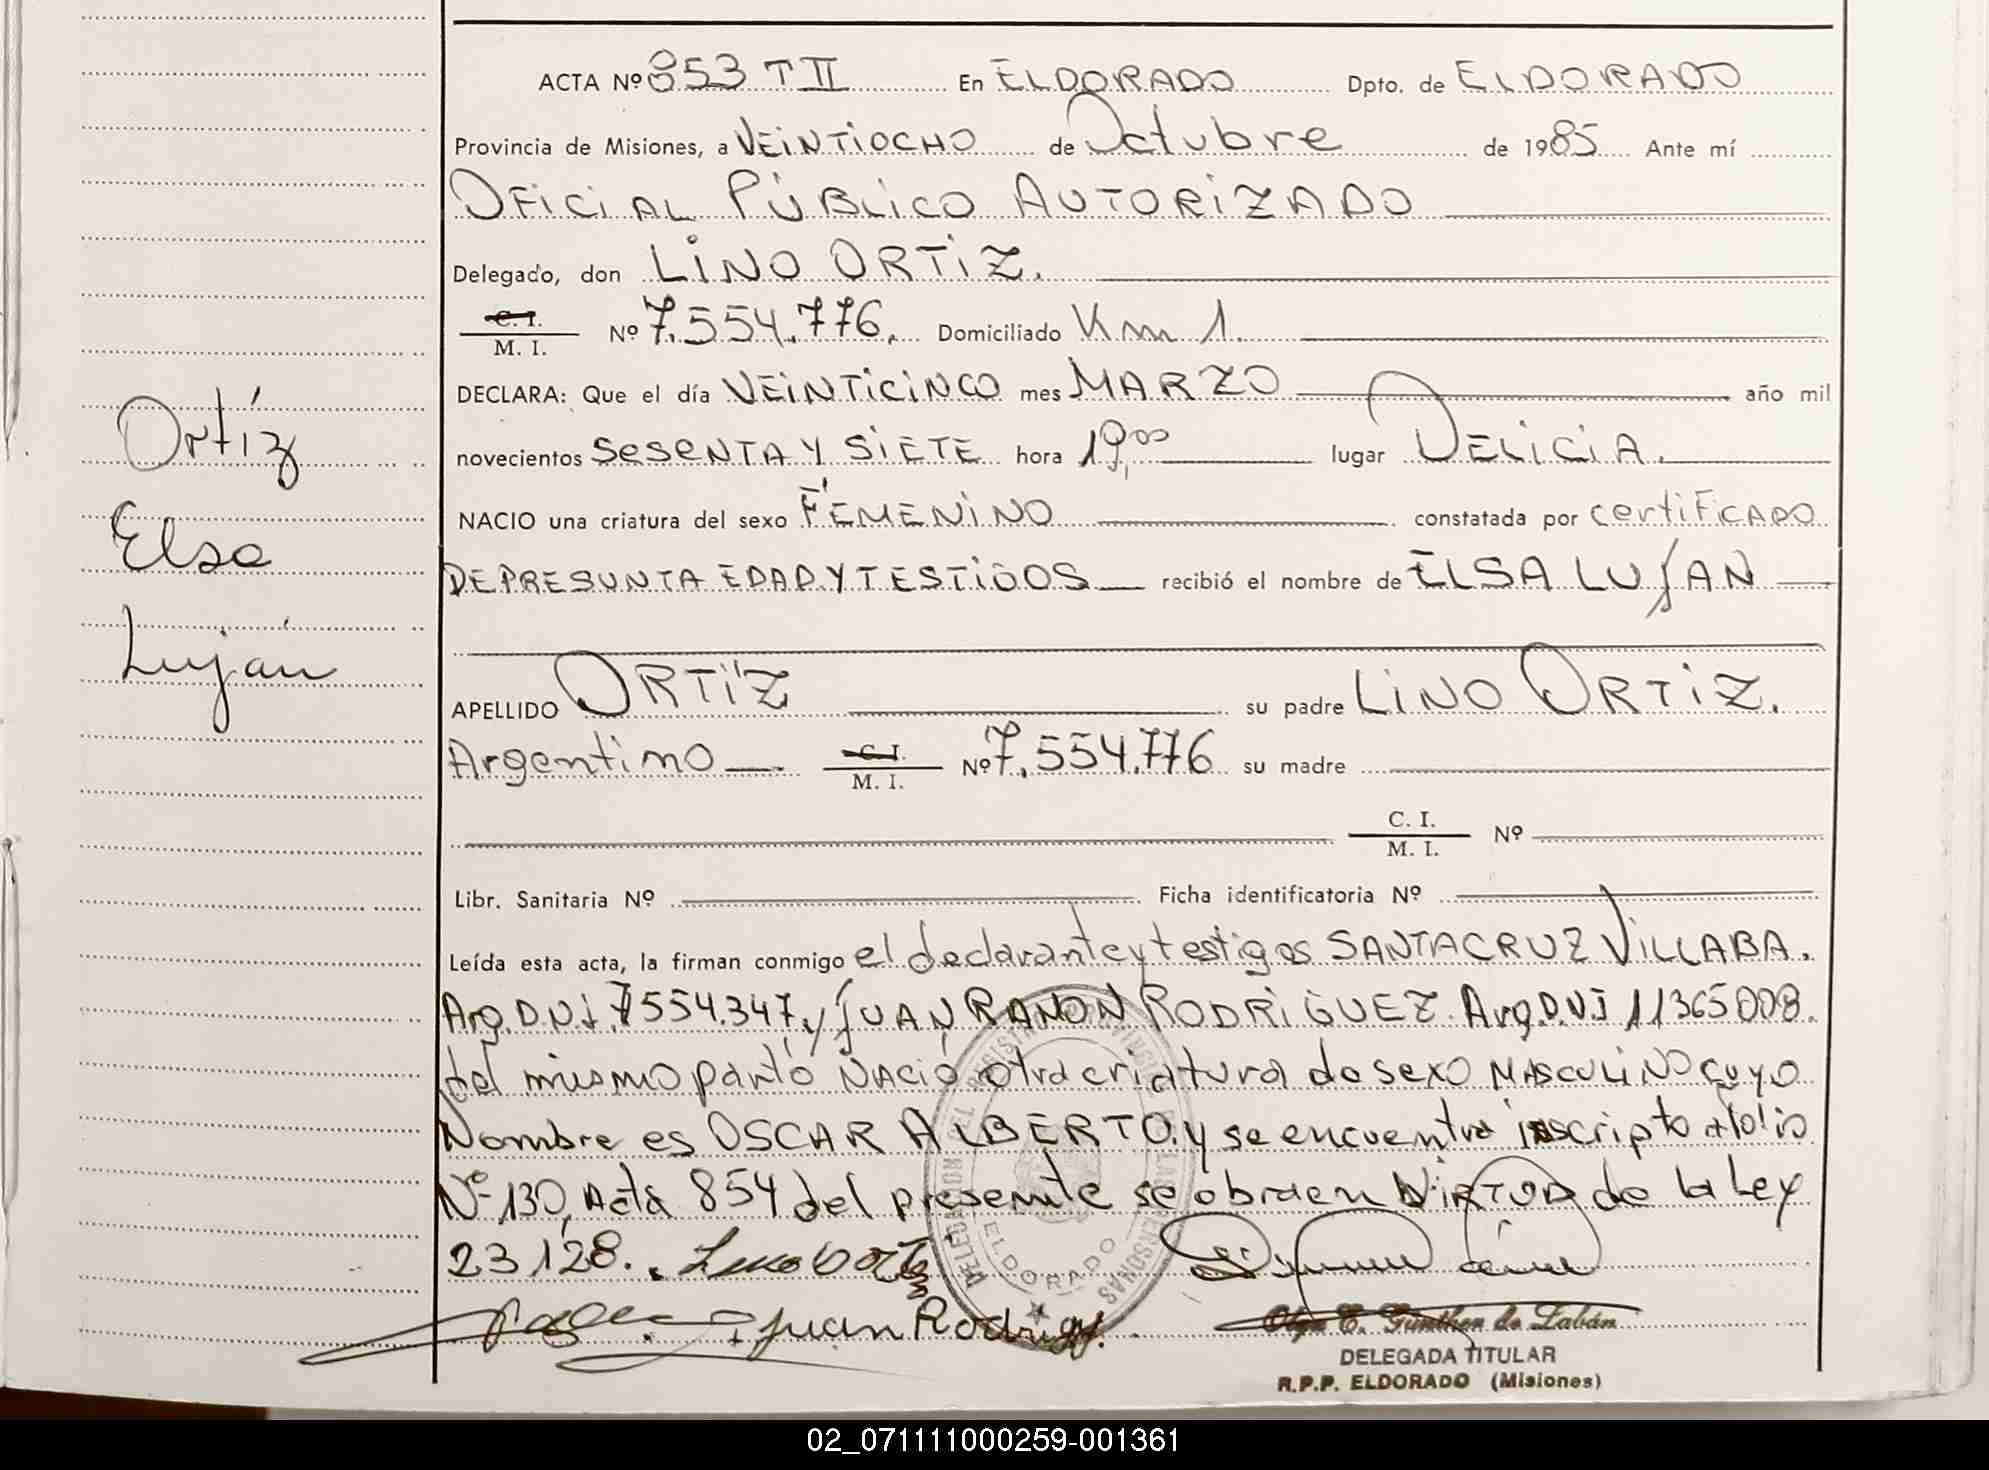 ACTA Nº 853 T II En ELDORADO Dpto. de ELDORADO
Provincia de Misiones, a VEINTIOCHO de Octubre de 1985 Ante mí
OFICIAL PÚBLICO AUTORIZADO
Delegado, don LINO ORTIZ.
C. I. / M. I. Nº 7.554.776. Domiciliado Km 1.
DECLARA: Que el día VEINTICINCO mes MARZO año mil
novecientos SESENTA Y SIETE hora 19,00 lugar DELICIA.
NACIO una criatura del sexo FEMENINO constatada por certiFICADO
DE PRESUNTA EDAD Y TESTIGOS recibió el nombre de ELSA LUJAN
APELLIDO ORTÍZ su padre LINO ORTIZ.
Argentino C. I. / M. I. Nº 7.554.776 su madre
C. I. / M. I. Nº
Libr. Sanitaria Nº Ficha identificatoria Nº
Leída esta acta, la firman conmigo el declarante y testigos SANTACRUZ VILLABA.
Arg. D.N.I. 7554.347, y JUAN RAMON RODRIGUEZ Arg. D.N.I 11365008.
del mismo parto NACió otra criatura de sexo MASCULINO cuyo
Nombre es OSCAR ALBERTO. y se encuentra inscripto al folio
Nº 130, Acta 854 del presente se obra en VIRTUD de la Ley
23128.
Juan Rodrigz.
Olga C. Günther de Labán
DELEGADA TITULAR
R.P.P. ELDORADO (Misiones)
Ortíz
Elsa
Luján
ELDORADO
02_071111000259-001361